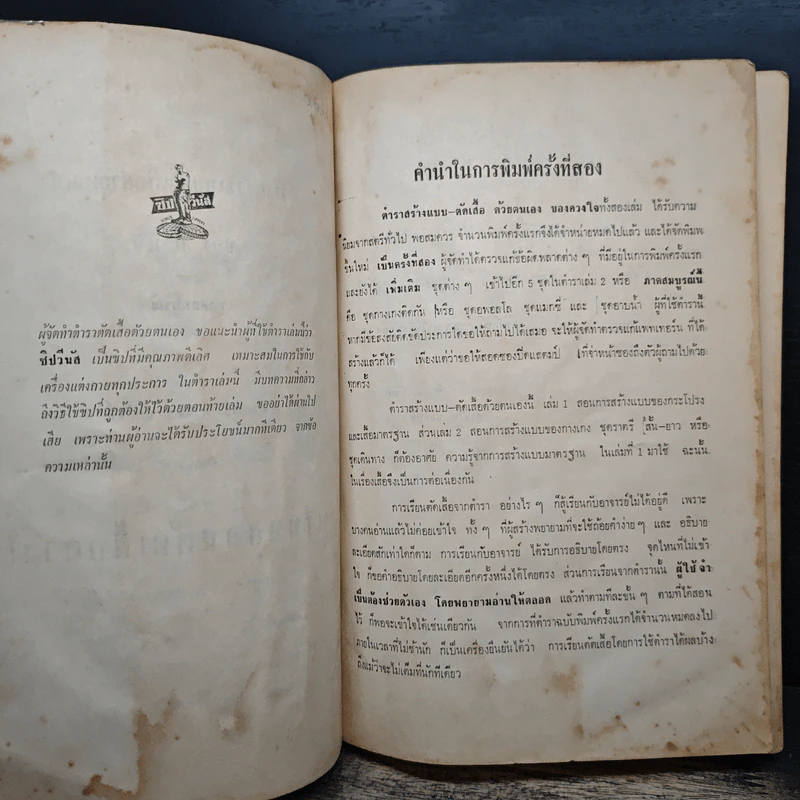 ซิปวีนัส
ผู้จัดทำตำราตัดเสื้อด้วยตนเอง ขอแนะนำผู้ที่ใช้ตำราเล่มนี้ว่า
ซิปวีนัส เป็นซิปที่มีคุณภาพดีเลิศ เหมาะสมในการใช้กับ
เครื่องแต่งกายทุกประการ ในตำราเล่มนี้ มีบทความที่กล่าว
ถึงวิธีใช้ซิปที่ถูกต้องให้ไว้ด้วยตอนท้ายเล่ม ขออย่าได้ผ่านไป
เสีย เพราะท่านผู้อ่านจะได้รับประโยชน์มากทีเดียว จากข้อ
ความเหล่านั้น
คำนำในการพิมพ์ครั้งที่สอง
ตำราสร้างแบบ-ตัดเสื้อ ด้วยตนเอง ของดวงใจทั้งสองเล่ม ได้รับความ
นิยมจากสตรีทั่วไป พอสมควร จำนวนพิมพ์ครั้งแรกจึงได้จำหน่ายหมดไปแล้ว และได้จัดพิมพ์
ขึ้นใหม่ เป็นครั้งที่สอง ผู้จัดทำได้ตรวจแก้ข้อผิดพลาดต่าง ๆ ที่มีอยู่ในการพิมพ์ครั้งแรก
และยังได้ เพิ่มเติม ชุดต่าง ๆ เข้าไปอีก 5 ชุดในตำราเล่ม 2 หรือ ภาคสมบูรณ์นี้
คือ ชุดกางเกงติดกัน หรือ ชุดอพอลโล ชุดแมกซี่ และ ชุดอาบน้ำ ผู้ที่ใช้ตำรานี้
หากมีข้อสงสัยติดขัดประการใดขอให้ถามไปได้เสมอ จะให้ผู้จัดทำตรวจแก้แพทเทอร์น ที่ได้
สร้างแล้วก็ได้ เพียงแต่ว่าขอให้สอดซองปิดแสตมป์ ที่จ่าหน้าซองถึงตัวผู้ถามไปด้วย
ทุกครั้ง
ตำราสร้างแบบ-ตัดเสื้อด้วยตนเองนี้ เล่ม 1 สอนการสร้างแบบของกระโปรง
และเสื้อมาตรฐาน ส่วนเล่ม 2 สอนการสร้างแบบของกางเกง ชุดราตรี สั้น-ยาว หรือ
ชุดเดินทาง ก็ต้องอาศัย ความรู้จากการสร้างแบบมาตรฐาน ในเล่มที่ 1 มาใช้ ฉะนั้น
ในเรื่องเสื้อจึงเป็นการต่อเนื่องกัน
การเรียนตัดเสื้อจากตำรา อย่างไร ๆ ก็สู้เรียนกับอาจารย์ไม่ได้อยู่ดี เพราะ
บางคนอ่านแล้วไม่ค่อยเข้าใจ ทั้ง ๆ ที่ผู้สร้างพยายามที่จะใช้ถ้อยคำง่าย ๆ และ อธิบาย
ละเอียดสักเท่าใดก็ตาม การเรียนกับอาจารย์ ได้รับการอธิบายโดยตรง จุดไหนที่ไม่เข้า
ใจ ก็ขอคำอธิบายโดยละเอียดอีกครั้งหนึ่งได้โดยตรง ส่วนการเรียนจากตำรานั้น ผู้ใช้จำ
เป็นต้องช่วยตัวเอง โดยพยายามอ่านให้ตลอด แล้วทำตามทีละขั้น ๆ ตามที่ได้สอน
ไว้ ก็พอจะเข้าใจได้เช่นเดียวกัน จากการที่ตำราฉบับพิมพ์ครั้งแรกได้จำนวนหมดลงไป
ภายในเวลาที่ไม่ช้านัก ก็เป็นเครื่องยืนยันได้ว่า การเรียนตัดเสื้อโดยการใช้ตำราได้ผลบ้าง
ถึงแม้ว่าจะไม่เต็มที่นักทีเดียว